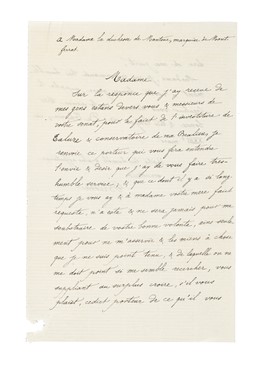 A Madame la duchesse de Mantoue, marquise de Mont
ferrat.
Madame
Sur la responce que j'ay receue de
mes gens estans devers vous & messieurs de
vostre senat, pour le faict de l'
Saluce & conservatoire de ma
renvoie ce porteur qui vous fera entendre
l'envie & desir que j'ay de vous faire tres-
humble service, & que ce dont il y a si long
temps je vous ay & à madame vostre mere faict
requeste, n'a esté & ne sera jamais pour me
soubstraire de vostre bonne volonté, ains seule
ment pour ne m'asservir & les miens à chose
que je ne suis point tenu, & de laquelle on ne
me doit point si me semble rechercher, vous
supliant au surplus croire, s'il vous
plaist, cedict porteur de ce qu'il vous